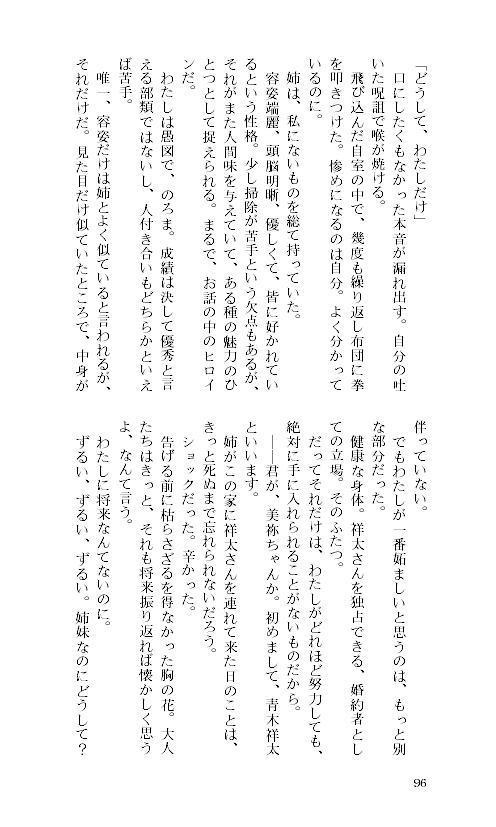 「どうして、わたしだけ」
　口にしたくもなかった本音が漏れ出す。自分の吐
いた呪詛で喉が焼ける。
　飛び込んだ自室の中で、幾度も繰り返し布団に拳
を叩きつけた。惨めになるのは自分。よく分かって
いるのに。
　姉は、私にないものを総て持っていた。
　容姿端麗、頭脳明晰、優しくて、皆に好かれてい
るという性格。少し掃除が苦手という欠点もあるが、
それがまた人間味を与えていて、ある種の魅力のひ
とつとして捉えられる。まるで、お話の中のヒロイ
ンだ。
　わたしは愚図で、のろま。成績は決して優秀と言
える部類ではないし、人付き合いもどちらかといえ
ば苦手。
　唯一、容姿だけは姉とよく似ていると言われるが、
それだけだ。見た目だけ似ていたところで、中身が
伴っていない。
　でもわたしが一番妬ましいと思うのは、もっと別
な部分だった。
　健康な身体。祥太さんを独占できる、婚約者とし
ての立場。そのふたつ。
　だってそれだけは、わたしがどれほど努力しても、
絶対に手に入れられることがないものだから。
　――君が、美祢ちゃんか。初めまして、青木祥太
といいます。
　姉がこの家に祥太さんを連れて来た日のことは、
きっと死ぬまで忘れられないだろう。
　ショックだった。辛かった。
　告げる前に枯らさざるを得なかった胸の花。大人
たちはきっと、それも将来振り返れば懐かしく思う
よ、なんて言う。
　わたしに将来なんてないのに。
　ずるい、ずるい、ずるい。姉妹なのにどうして？
96